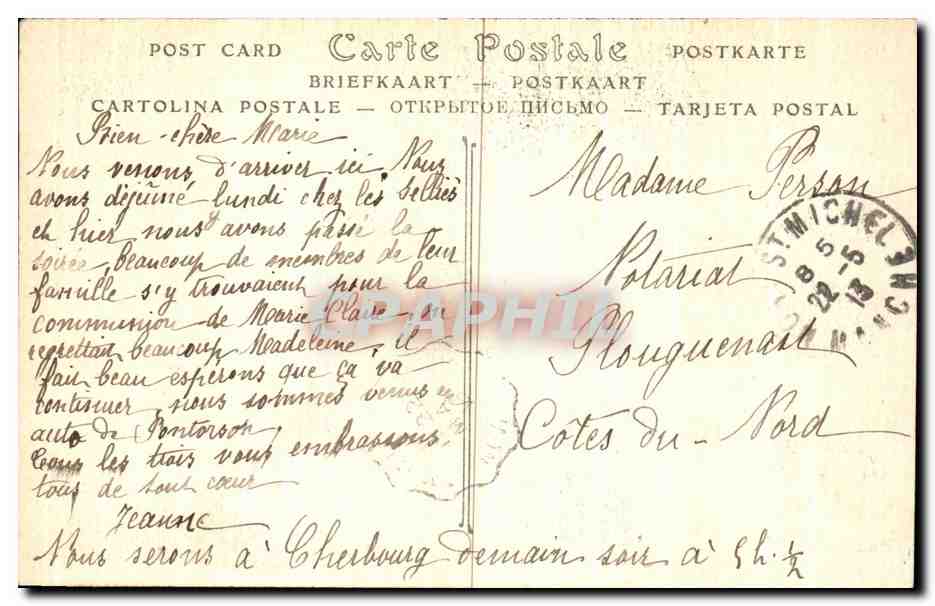 POST CARD Carte Postale POSTKARTE
BRIEFKAART — POSTKAART
CARTOLINA POSTALE — ОТКРЫТОЕ ПИСЬМО — TARJETA POSTAL
Bien-chère Marie
Nous venons d'arriver ici. Nous
avons déjeûné lundi chez les
et hier nous avons passé la
soirée, beaucoup de membres de leur
famille s'y trouvaient pour la
communion de Marie Claire, on
regrettait beaucoup Madeleine, il
fait beau espérons que ça va
continuer, nous sommes venus en
auto de Pontorson
Tous les trois vous embrassons
tous de tout cœur
Jeanne
Nous serons à Cherbourg demain soir à 5h. ½
Madame Person
Notariat
Plouguenast
Côtes du-Nord
ST MICHEL
MANCHE
8 5
22 -5
13
CPAPHIL